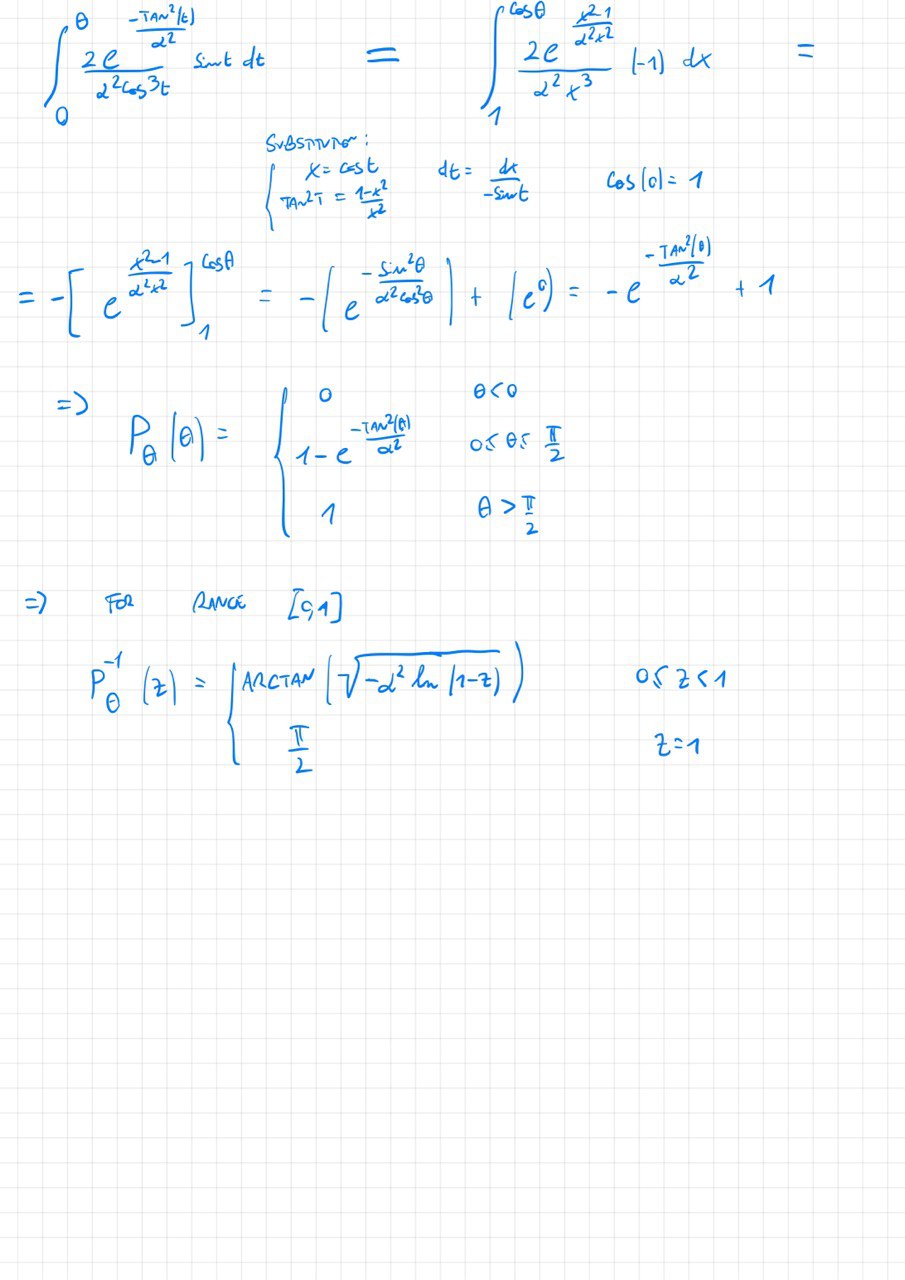 ∫₀^θ (2e^(-TAN²(t)/α²))/(α²cos³t) sint dt = ∫₁^cosθ (2e^((x²-1)/(α²x²)))/(α²x³) (-1) dx =
SUBSTITUTION:
{ x = cost dt = dx/(-sint) cos(0) = 1
TAN²T = (1-x²)/x²
= -[e^((x²-1)/(α²x²))]₁^cosθ = -(e^(-sin²θ/(α²cos²θ))) + (e⁰) = -e^(-TAN²(θ)/α²) + 1
=> P_θ(θ) = { 0 θ<0
1-e^(-TAN²(θ)/α²) 0≤θ≤π/2
1 θ>π/2
=> FOR RANGE [0,1]
P_θ⁻¹(z) = { ARCTAN(√(-α² ln(1-z))) 0≤z<1
π/2 z=1